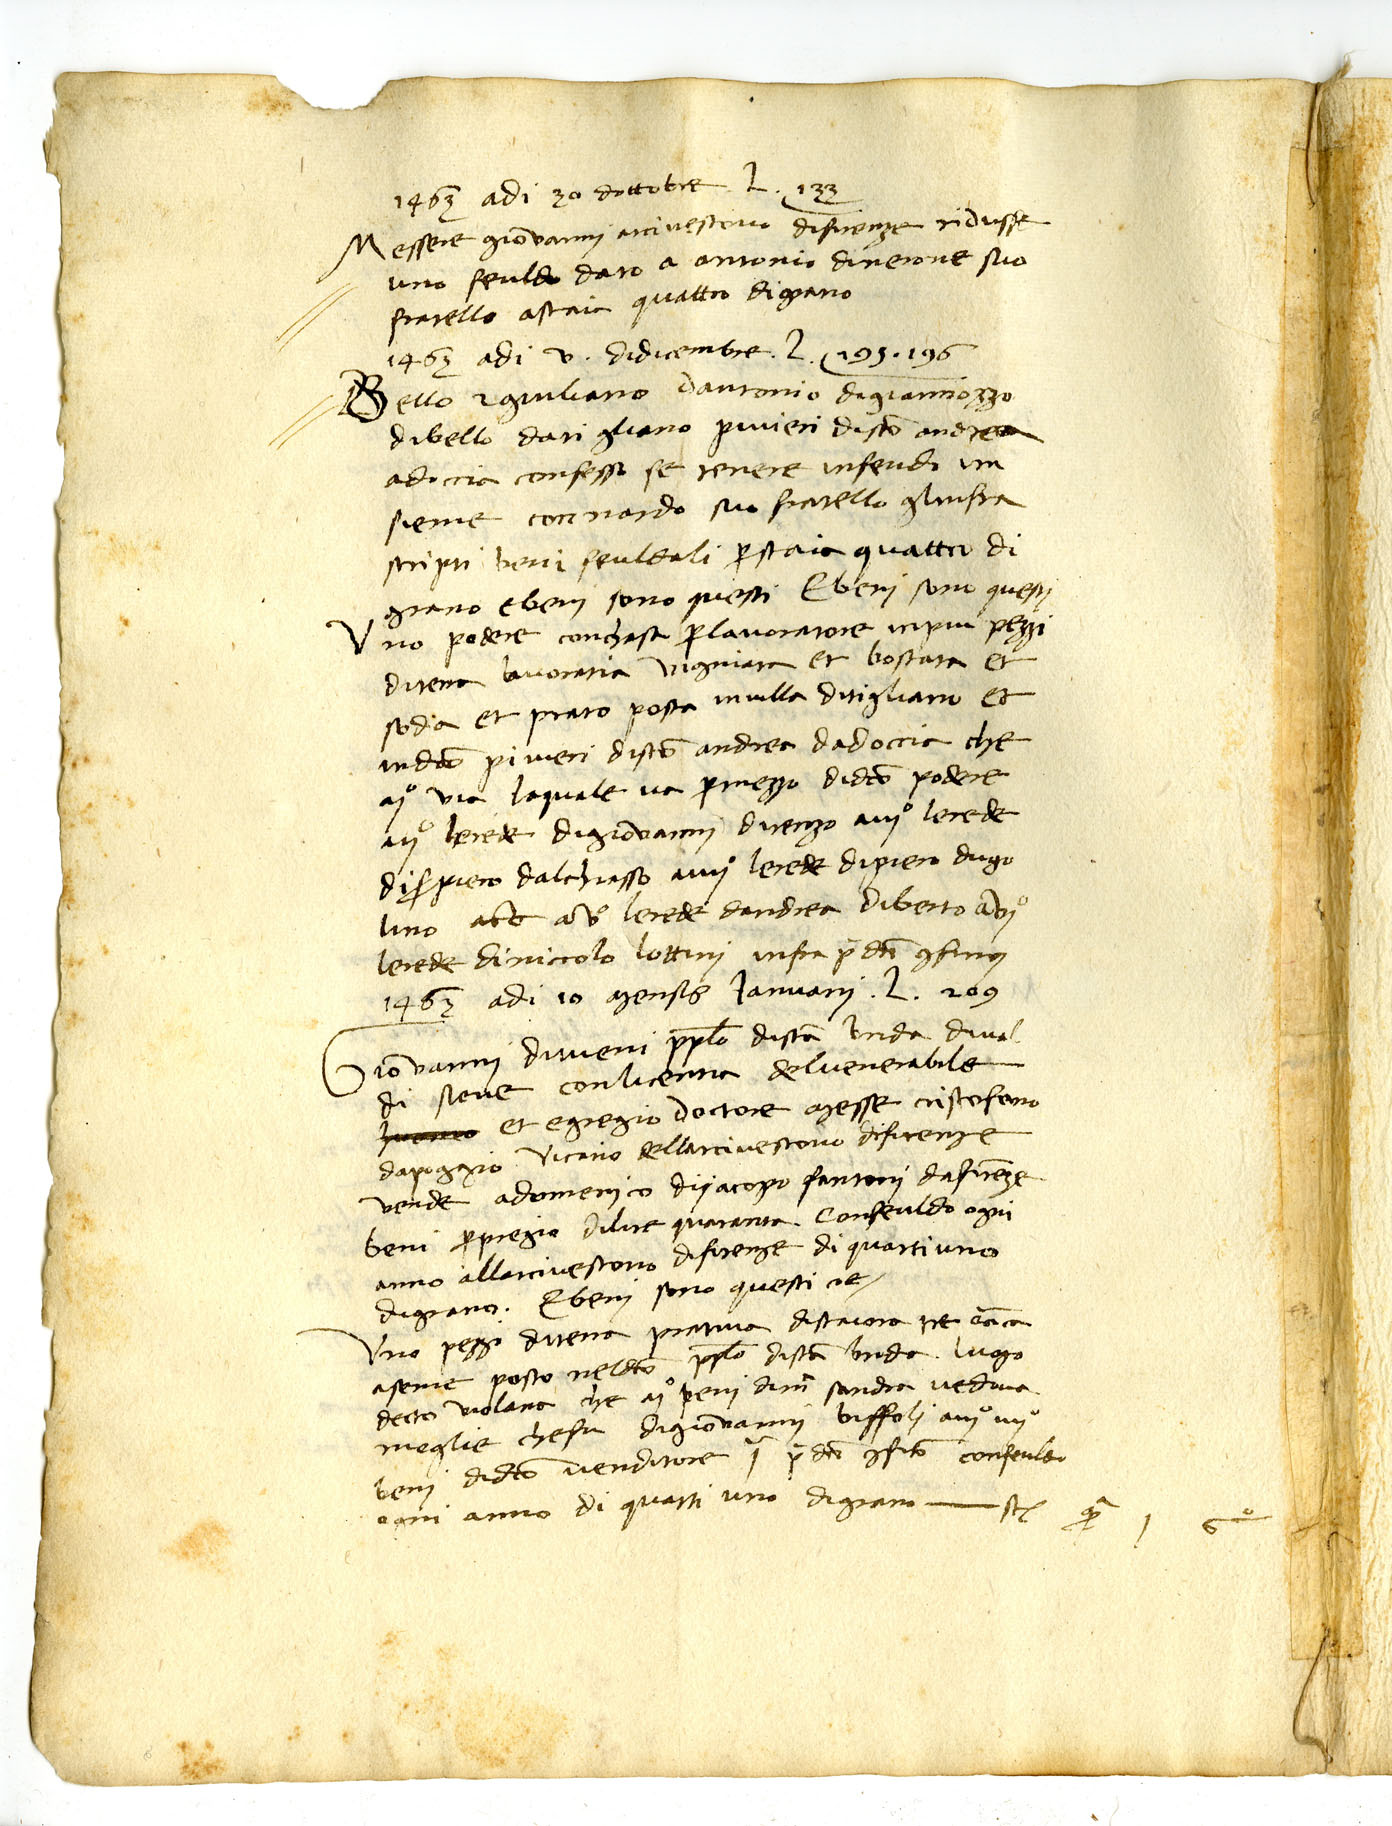 1463 adi 30 dottobre L. 133
Messere giovanni arcivescovo difirenze ridusse
uno feuldo dato a antonio dinerone suo
fratello astaia quattro digrano
1463 adi v. didicembre. L. 195. 196
Bello 2 giuliano dantonio digiannozzo
dibello datigliano pivieri discto andrea
adoccia confesso se tenere infeudo in
sieme connardo suo fratello glinfra
scripti beni feuldali p staia quattro di
grano ebeni sono questi Ebeni sono questi
Uno podere conchasa p lavoratore inpiu pezzi
diterra lavoratia vigniata et boscata et
soda et prato posta invilla ditigliano et
indcto pivieri discto andrea dadoccia che
aj° via laquale va p mezzo didcto podere
aij° lerede digiovanni direnzo aiij° lerede
di piero dalchiasso aiiij° lerede dipiero dugo
lino av° lerede dandrea diberto avj°
lerede diniccolo lottini infra pdcti 9fini
1463 adi 10 mensis Januarij. L. 209
Giovanni divieni pplo discta brida dival
di sieve conlicentia delvenerabile
huomo et egregio doctore messe cristofano
dapoggio vicario dellarcivescovo difirenze
vende adomenico dijacopo fantonj dafirenze
beni p pregio dilire quaranta. Confeuldo ogni
anno allarcivescovo difirenze di quarti uno
digrano. Ebeni sono questi
Uno pezzo diterra prativa distaiora tre
aseme posto neldcto pplo discta brida. luogo
decto violana che aj° beni sandra vedova
moglie chefu digiovanni biffolj aij° iij°
beni didcto venditore pdcti 9fini confeuldo
ogni anno di quarti uno digrano — st
1 6°